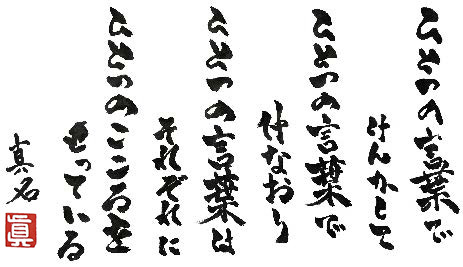 ひとつの言葉で
けんかして
ひとつの言葉で
仲なおり
ひとつの言葉は
それぞれに
ひとつのこころを
もっている
真名
眞